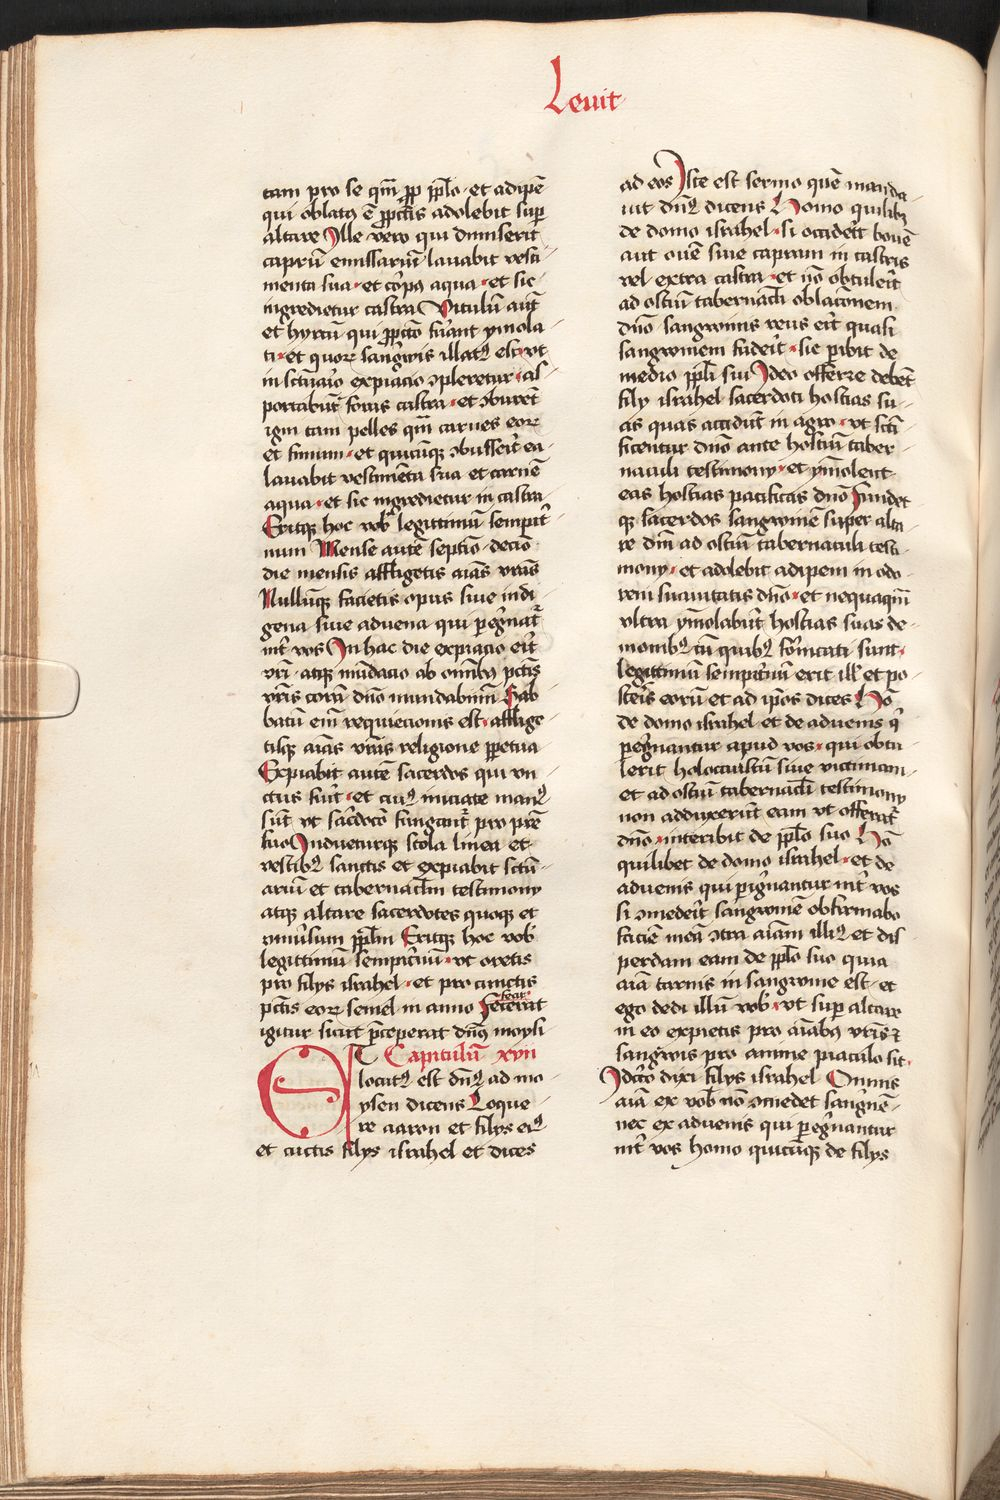 Leuit
tam pro se qm̄ ꝓ pp̄lo · et adipē
qui oblatꝰ ē ꝓ pctīs adolebit suꝑ
altare Ille vero qui dimiserit
caprū emissariū lauabit vesti
menta sua · et corpꝰ aqua · et sic
ingredietur castra Vitulū aūt
et hyrcū qui ꝓ pctō fuāt ymola
ti · et quoꝝ sangwis illatꝰ est · vt
in sctūaio expiacio ꝯpleretur · as
portabūt foras castra · et ꝯburēt
igni tam pelles qm̄ carnes eoꝝ
et fimum · et quicūqꝫ ꝯbusserit ea
lauabit vestimēta sua et carnē
aqua · et sic ingredietur in castra
Eritqꝫ hoc vob̄ legittimū sempit̾
num Mense autē septīo · decīo
die mensis affligetis aīas vrās
Nullūqꝫ facietis opus siue indi
gena siue aduena qui pegnat̾
int̾ vos In hac die expiacio erit
vrī · atqꝫ mūdacio ab omībꝫ pctīs
vrīs corā dn̄o mundabimī Sab
batū em̄ requiecionis est · afflige
tisqꝫ aīas vrās religione ꝑpetua
Expiabit autē sacerdos qui vn
ctus fuit · et cuiꝰ iniciate manꝰ
sūt vt sac̾docō fungat̾ pro prē
suo Indueturqꝫ stola linea et
vestibꝰ sanctis et expiabit sctū
arium et tabernacl̄m testimony
atqꝫ altare sacerdotes quoqꝫ et
vniūsum pp̄lm Eritqꝫ hoc vob̄
legittimū sempitnū · vt oretis
pro filys israhel · et pro cunctis
pctīs eoꝝ semel in anno fecerat
fecit
igitur sicut p̄ceperat dn̄s moysi
Capitulū xvii
ET
locutꝰ est dn̄s ad mo
ysen dicens Loque
re aaron et filys eiꝰ
et cūctis filys israhel et dices
ad eos Iste est sermo quē manda
uit dn̄s dicens Homo quilibꝫ
de domo israhel · si occiderit bouē
aut ouē siue capram in castris
vel extra castra · et nō obtulerit
ad ostiū tabernacl̄i oblacōnem
dn̄o sangwinis reus erit quasi
sangwinem fuderit · sic ꝑibit de
medio pp̄li sui Ideo offerre debēt
fily israhel sacerdoti hostias su
as quas occidūt in agro · vt scti
ficentur dn̄o ante hostiū taber
naculi testimony · et ymolent
eas hostias pacificas dn̄o Fundet
qꝫ sacerdos sangwinē super alta
re dn̄i ad ostiū tabernaculi testi
mony · et adolebit adipem in odo
rem suauitatis dn̄o · et nequaqm̄
vltra ymolabūt hostias suas de
monibꝰ cū quibꝰ fornicati sunt
legittimū sempitnū erit ill̾ et po
steris eorū et ad ip̄os dices Hō
de domo israhel et de aduenis q̾
pegnantur apud vos · qui obtu
lerit holocaustū siue victimam
et ad ostiū tabernacl̄i testimony
non adduxerit eam vt offerat̾
dn̄o · interibit de pp̄lo suo Hō
quilibet de domo israhel · et de
aduenis qui pegnantur int̾ vos
si ꝯmederit sangwinē obfirmabo
faciē meā ꝯtra aīam illiꝰ et dis
perdam eam de pp̄lo suo quia
aīa carnis in sangwine est · et
ego dedi illū vob̄ · vt suꝑ altare
in eo expietis pro aīabꝫ vrīs ⁊
sangwis pro anime piaculo sit ·
Idcirco dixi filys israhel Omnis
aīa ex vob̄ nō ꝯmedet sangnē
nec ex aduenis qui pegnantur
int̾ vos homo quicūqꝫ de filys